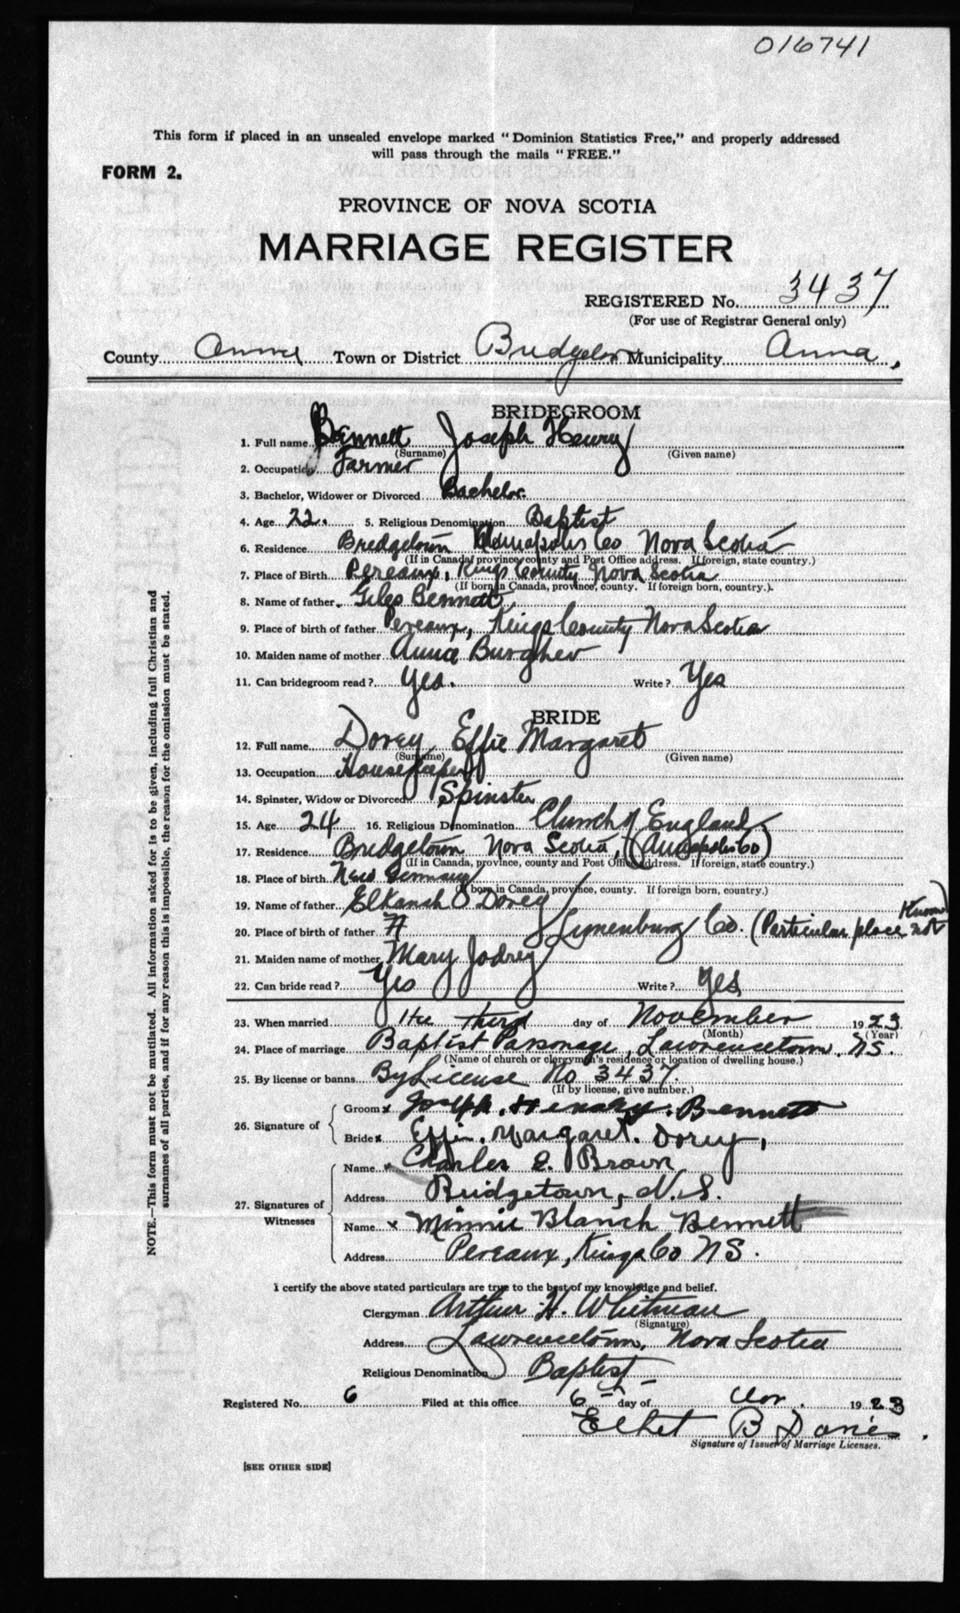 016741
This form if placed in an unsealed envelope marked "Dominion Statistics Free," and properly addressed
will pass through the mails "FREE."
FORM 2.
PROVINCE OF NOVA SCOTIA
MARRIAGE REGISTER
REGISTERED No. 3437
(For use of Registrar General only)
County Anna Town or District Bridgetown Municipality Anna.
BRIDEGROOM
1. Full name Bennett Joseph Henry
(Surname) (Given name)
2. Occupation Farmer
3. Bachelor, Widower or Divorced Bachelor
4. Age 22. 5. Religious Denomination Baptist
6. Residence Bridgetown Annapolis Co Nova Scotia
(If in Canada, province, county and Post Office address. If foreign, state country.)
7. Place of Birth Pereaux, Kings County Nova Scotia
(If born in Canada, province, county. If foreign born, country.)
8. Name of father Giles Bennett
9. Place of birth of father Pereaux, Kings County Nova Scotia
10. Maiden name of mother Anna Burgher
11. Can bridegroom read? Yes. Write? Yes
BRIDE
12. Full name Dorey Effie Margaret
(Surname) (Given name)
13. Occupation Housekeeper
14. Spinster, Widow or Divorced Spinster
15. Age 24 16. Religious Denomination Church of England
17. Residence Bridgetown Nova Scotia, (Annapolis Co)
(If in Canada, province, county and Post Office address. If foreign, state country.)
18. Place of birth New Germany
(If born in Canada, province, county. If foreign born, country.)
19. Name of father Elkanah Dorey
20. Place of birth of father Lunenburg Co. (Particular place not Known)
21. Maiden name of mother Mary Jodrey
22. Can bride read? Yes Write? Yes
23. When married the third day of November 1923
(Month) (Year)
24. Place of marriage Baptist Parsonage, Lawrencetown, N.S.
(Name of church or clergyman's residence or location of dwelling house.)
25. By license or banns By License No 3437.
(If by license, give number.)
26. Signature of Groom x Joseph. Henry. Bennett
Bride x Effie. Margaret. Dorey,
27. Signatures of Witnesses Name x Charles E. Brown
Address Bridgetown, N.S.
Name x Minnie Blanch Bennett
Address Pereaux, Kings Co N.S.
I certify the above stated particulars are true to the best of my knowledge and belief.
Clergyman Arthur H. Whitman
(Signature)
Address Lawrencetown, Nova Scotia
Religious Denomination Baptist
Registered No. 6 Filed at this office 6th day of Nov. 1923
B
Signature of Issuer of Marriage Licenses.
[SEE OTHER SIDE]
NOTE.—This form must not be mutilated. All information asked for is to be given, including full Christian and
surnames of all parties, and if for any reason this is impossible, the reason for the omission must be stated.